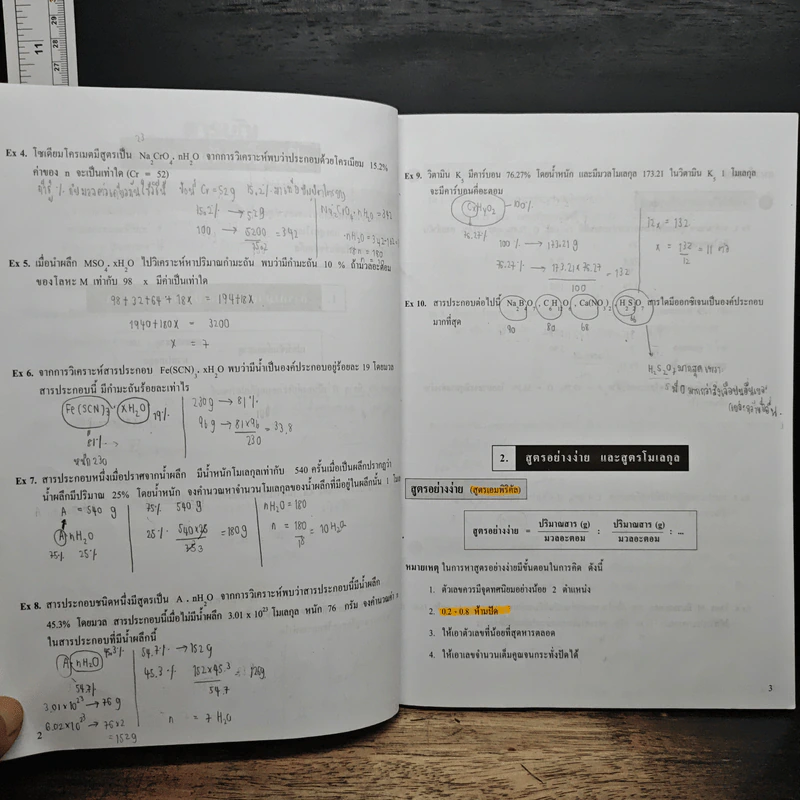 Ex 4. โซเดียมโครเมตมีสูตรเป็น Na2CrO4. nH2O จากการวิเคราะห์พบว่าประกอบด้วยโครเมียม 15.2%
ค่าของ n จะเป็นเท่าใด (Cr = 52)
15.2% → 52 g
100 → 5200 = 342
15.2
Ex 5. เมื่อนำผลึก MSO4. xH2O ไปวิเคราะห์หาปริมาณกำมะถัน พบว่ามีกำมะถัน 10 % ถ้ามวลอะตอม
ของโลหะ M เท่ากับ 98 x มีค่าเป็นเท่าใด
98 + 32 + 64 + 18x = 194 + 18x
1940 + 180x = 3200
x = 7
Ex 6. จากการวิเคราะห์สารประกอบ Fe(SCN)3. xH2O พบว่ามีน้ำเป็นองค์ประกอบอยู่ร้อยละ 19 โดยมวล
สารประกอบนี้ มีกำมะถันร้อยละเท่าไร
Fe(SCN)3 xH2O 19%
81%
230
230g → 81%
96g → 81×96 = 33.8
230
Ex 7. สารประกอบหนึ่งเมื่อปราศจากน้ำผลึก มีน้ำหนักโมเลกุลเท่ากับ 540 ครั้นเมื่อเป็นผลึกปรากฏว่า
น้ำผลึกมีปริมาณ 25% โดยน้ำหนัก จงคำนวณหาจำนวนโมเลกุลของน้ำผลึกที่มีอยู่ในผลึกนั้น 1
A = 540 g
A nH2O
75% 25%
75% 540 g
25% 540×25 = 180 g
75
nH2O = 180
n = 180 = 10 H2O
18
Ex 8. สารประกอบชนิดหนึ่งมีสูตรเป็น A . nH2O จากการวิเคราะห์พบว่าสารประกอบนี้มีน้ำผลึก
45.3% โดยมวล สารประกอบนี้เมื่อไม่มีน้ำผลึก 3.01 x 10^23 โมเลกุล หนัก 76 กรัม จงคำนวณค่า
ในสารประกอบที่มีน้ำผลึกนี้
A nH2O 45.3%
54.7%
3.01×10^23 → 76 g
6.02×10^23 → 76×2
= 152 g
54.7% → 152 g
45.3% 152×45.3 = 126g
54.7
n = 7 H2O
2
Ex 9. วิตามิน K3 มีคาร์บอน 76.27% โดยน้ำหนัก และมีมวลโมเลกุล 173.21 ในวิตามิน K3 1 โมเลกุล
จะมีคาร์บอนกี่อะตอม
100%
76.27%
100% → 173.21 g
76.27% → 173.21×76.27 = 132
100
12x = 132
x = 132 = 11
12
Ex 10. สารประกอบต่อไปนี้ Na2B4O7, C6H12O6, Ca(NO3)2, H2S2O7 สารใดมีออกซิเจนเป็นองค์ประกอบ
มากที่สุด
2. สูตรอย่างง่าย และสูตรโมเลกุล
สูตรอย่างง่าย (สูตรเอมพิริคัล)
สูตรอย่างง่าย = ปริมาณสาร (g) : ปริมาณสาร (g) : ...
มวลอะตอม มวลอะตอม
หมายเหตุ ในการหาสูตรอย่างง่ายมีขั้นตอนในการคิด ดังนี้
1. ตัวเลขควรมีจุดทศนิยมอย่างน้อย 2 ตำแหน่ง
2. 0.2 - 0.8 ห้ามปัด
3. ให้เอาตัวเลขที่น้อยที่สุดหารตลอด
4. ให้เอาเลขจำนวนเต็มคูณจนกระทั่งปัดได้
3